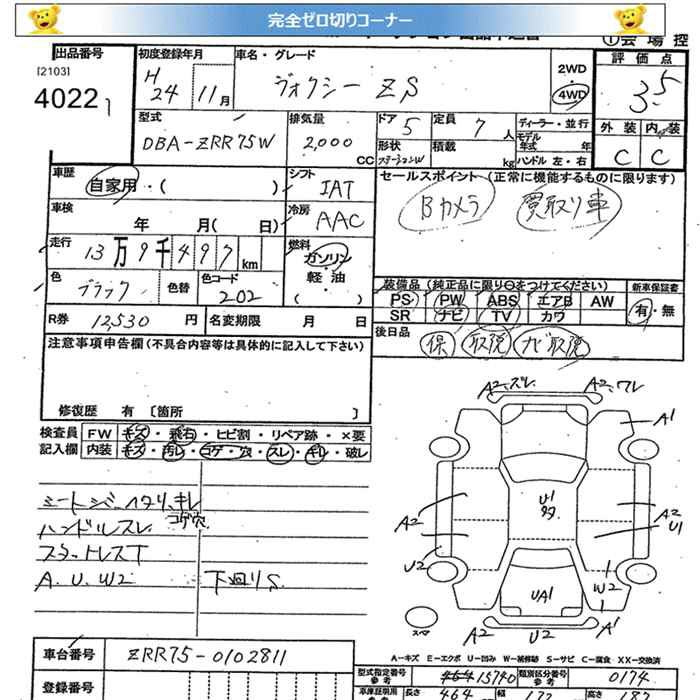 完全ゼロ切りコーナー
①会 場 控
出品番号 初度登録年月 車名・グレード 評 価 点
[2103] H 24 11月 ヴォクシー ZS 2WD 4WD 3 5
4022
型式 排気量 ドア 5 定員 7 人 ディーラー・並行 外 装 内 装
DBA-ZRR75W 2,000 CC 形状 ステーションW 積載 kg モデル年式 年 ハンドル 左・右 C C
車歴 自家用・( ) シフト IAT セールスポイント(正常に機能するものに限ります)
車検 年 月( 日) 冷房 AAC Bカメラ 買取り車
走行 13万9千497km 燃料 ガソリン 軽油 ( )
色 ブラック 色替 色コード 202 装備品(純正品に限り○をつけてください) 新車保証書
PS PW ABS エアB AW 有・無
SR ナビ TV カワ
R券 12,530 円 名変期限 月 日 後日品 保 取説 ナビ取説
注意事項申告欄(不具合内容等は具体的に記入して下さい)
修復歴 有 〔箇所 〕
検査員 FW キズ・飛石・ヒビ割・リペア跡・×要
記入欄 内装 キズ・汚レ・コゲ・穴・スレ・キレ・破レ
シートシワ、ヘタリ、キレ
コゲ穴
ハンドルスレ
スタットレスT
A.U.W2 下廻りS
A2.ズレ A2、ワレ
A1
U1
タタ
A2 A2
U1
U2 W2
UA1
スペア A2 U2 A1
A-キズ E-エクボ U-凹み W-補修跡 S-サビ C-腐食 XX-交換済
車台番号 ZRR75-0102811
登録番号
型式指定番号 参考 15740 類別区分番号 参考 0174
車庫証明用 参考 長さ 464 幅 172 高さ 187